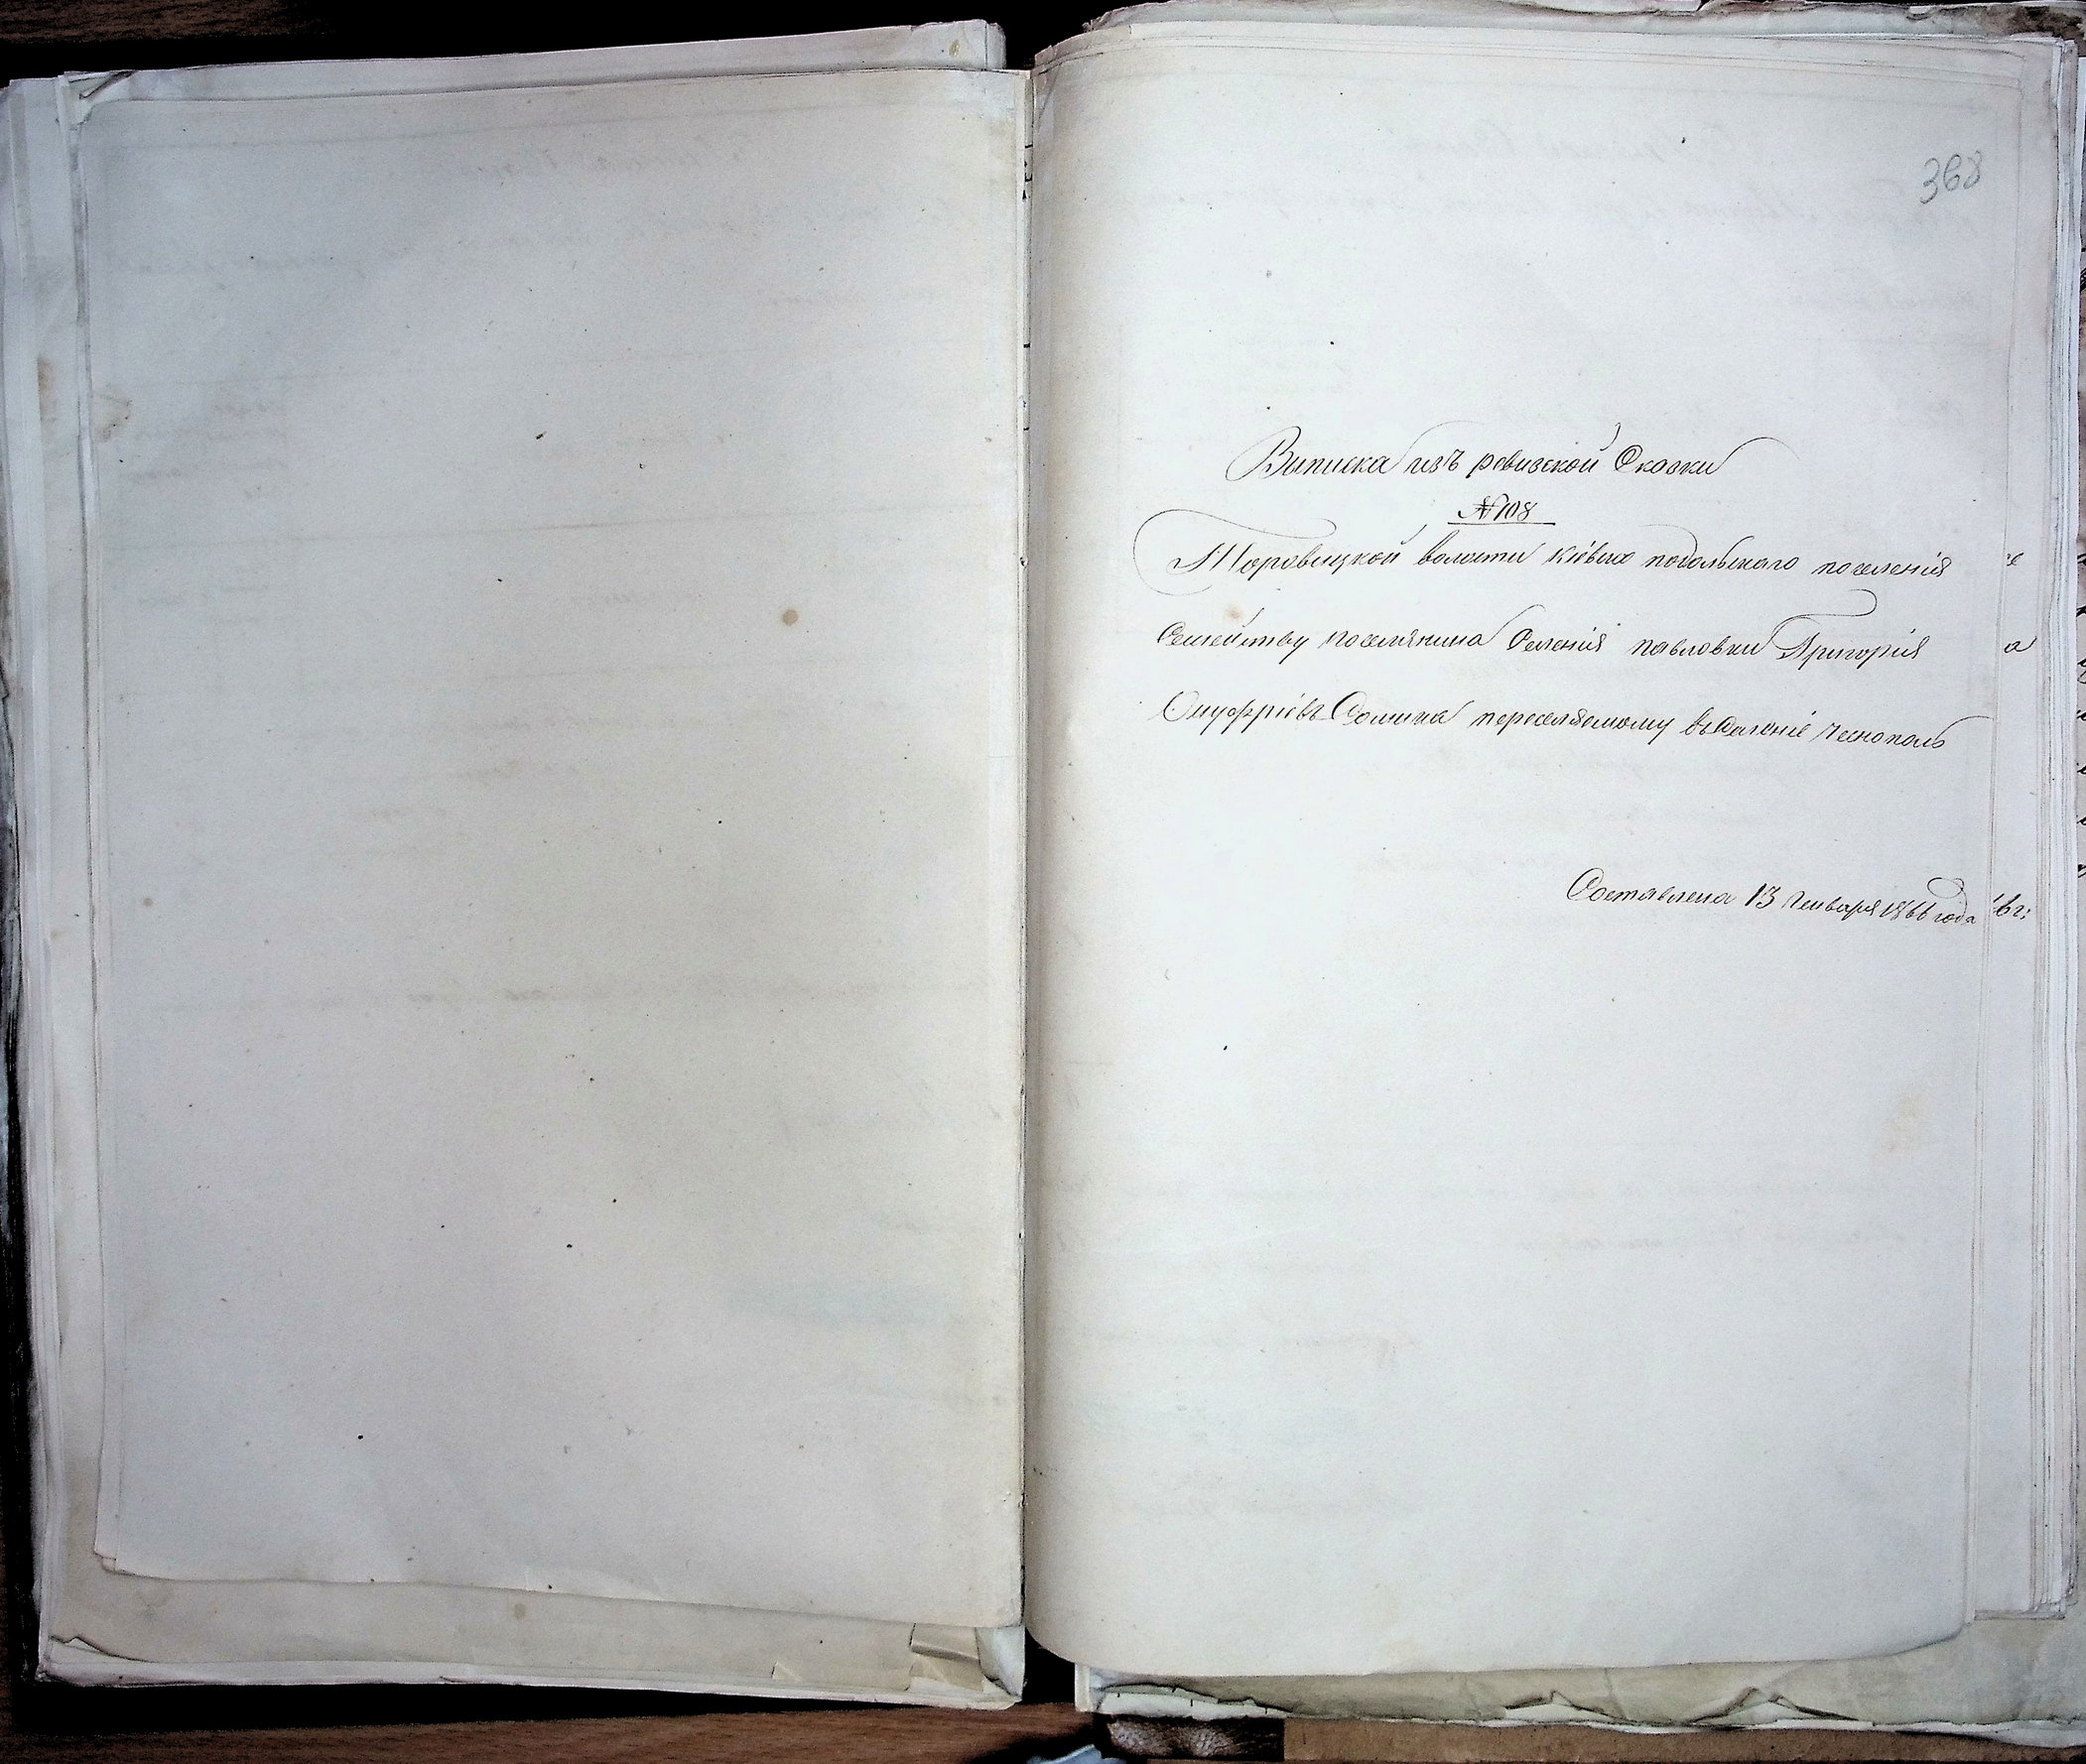 368
Выписка изъ ревизской Сказки
№ 108
Торовицкой волости Кіевъ подольскаго поселенія
Семейству поселянина Селенія павловки Григорія
Онуфріевъ Сомина переселяемому въ Селеніе Чеснополь
Составлена 13 Генваря 1866 года